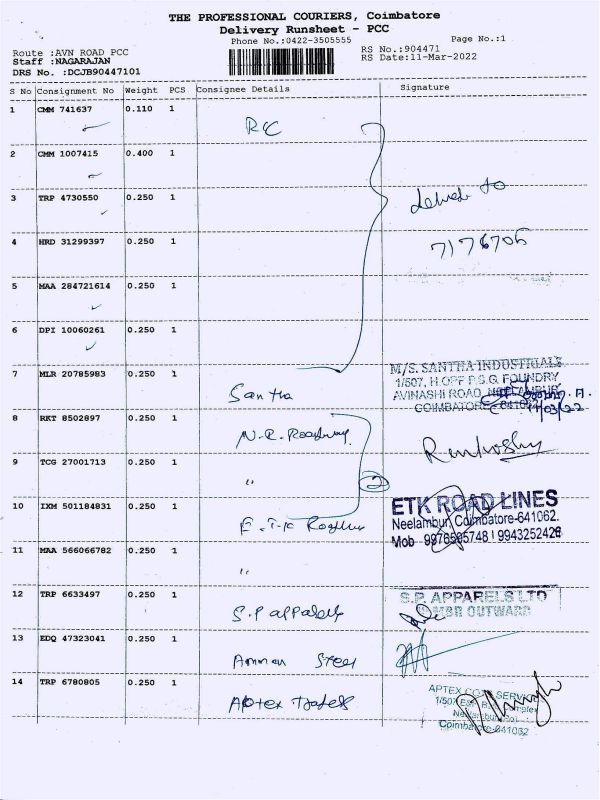 THE PROFESSIONAL COURIERS, Coimbatore
Delivery Runsheet - PCC
Phone No.:0422-3505555
Page No.:1
Route :AVN ROAD PCC
Staff :NAGARAJAN
DRS No. :DCJB90447101
RS No.:904471
RS Date:11-Mar-2022
S No Consignment No Weight PCS Consignee Details Signature
1 CMM 741637 0.110 1
R/C
2 CMM 1007415 0.400 1
3 TRP 4730550 0.250 1
to
4 HRD 31299397 0.250 1
7176706
5 MAA 284721614 0.250 1
6 DPI 10060261 0.250 1
7 MLR 20785983 0.250 1
Santha
M/S. SANTHA INDUSTRIALS
1/507, H.OPP P.S.G. FOUNDRY
AVINASHI ROAD, NEELAMBUR
COIMBATORE - 641062
11/03/22
8 RKT 8502897 0.250 1
N.R. Roadway
9 TCG 27001713 0.250 1
"
2
10 IXM 501184831 0.250 1
E.T.K
ETK ROAD LINES
Neelambur, Coimbatore-641062.
11 MAA 566066782 0.250 1
"
12 TRP 6633497 0.250 1
S.P apparels
S.P. APPARELS LTD
OUTWARD
13 EDQ 47323041 0.250 1
Amman Steel
14 TRP 6780805 0.250 1
Aptex Traders
APTEX
Coimbatore-641062